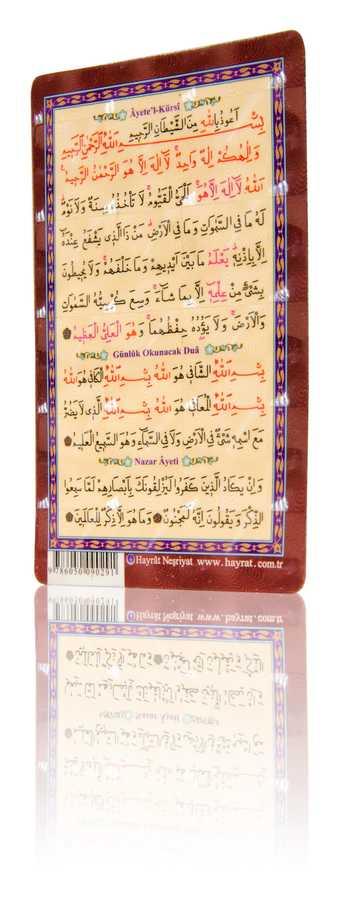 Âyete'l-Kürsî
اَعُوذُ بِاللّٰهِ مِنَ الشَّيْطَانِ الرَّجِيمِ
بِسْمِ اللّٰهِ الرَّحْمٰنِ الرَّحِيمِ
وَاِلٰهُكُمْ اِلٰهٌ وَاحِدٌ لَا اِلٰهَ اِلَّا هُوَ الرَّحْمٰنُ الرَّحِيمُ
اَللّٰهُ لَا اِلٰهَ اِلَّا هُوَ اَلْحَيُّ الْقَيُّومُ لَا تَأْخُذُهُ سِنَةٌ وَلَا نَوْمٌ
لَهُ مَا فِي السَّمٰوَاتِ وَمَا فِي الْاَرْضِ مَنْ ذَا الَّذِي يَشْفَعُ عِنْدَهُ
اِلَّا بِاِذْنِهِ يَعْلَمُ مَا بَيْنَ اَيْدِيهِمْ وَمَا خَلْفَهُمْ وَلَا يُحِيطُونَ
بِشَيْءٍ مِنْ عِلْمِهِ اِلَّا بِمَا شَاءَ وَسِعَ كُرْسِيُّهُ السَّمٰوَاتِ
وَالْاَرْضَ وَلَا يَؤُدُهُ حِفْظُهُمَا وَهُوَ الْعَلِيُّ الْعَظِيمُ
Günlük Okunacak Duâ
بِسْمِ اللّٰهِ الشَّافِي هُوَ اللّٰهُ بِسْمِ اللّٰهِ الْكَافِي هُوَ اللّٰهُ
بِسْمِ اللّٰهِ الْمُعَافِي هُوَ اللّٰهُ بِسْمِ اللّٰهِ الَّذِي لَا يَضُرُّ
مَعَ اسْمِهِ شَيْءٌ فِي الْاَرْضِ وَلَا فِي السَّمَاءِ وَهُوَ السَّمِيعُ الْعَلِيمُ
Nazar Âyeti
وَاِنْ يَكَادُ الَّذِينَ كَفَرُوا لَيُزْلِقُونَكَ بِاَبْصَارِهِمْ لَمَّا سَمِعُوا
الذِّكْرَ وَيَقُولُونَ اِنَّهُ لَمَجْنُونٌ وَمَا هُوَ اِلَّا ذِكْرٌ لِلْعَالَمِينَ
9786050090291
Hayrât Neşriyat www.hayrat.com.tr